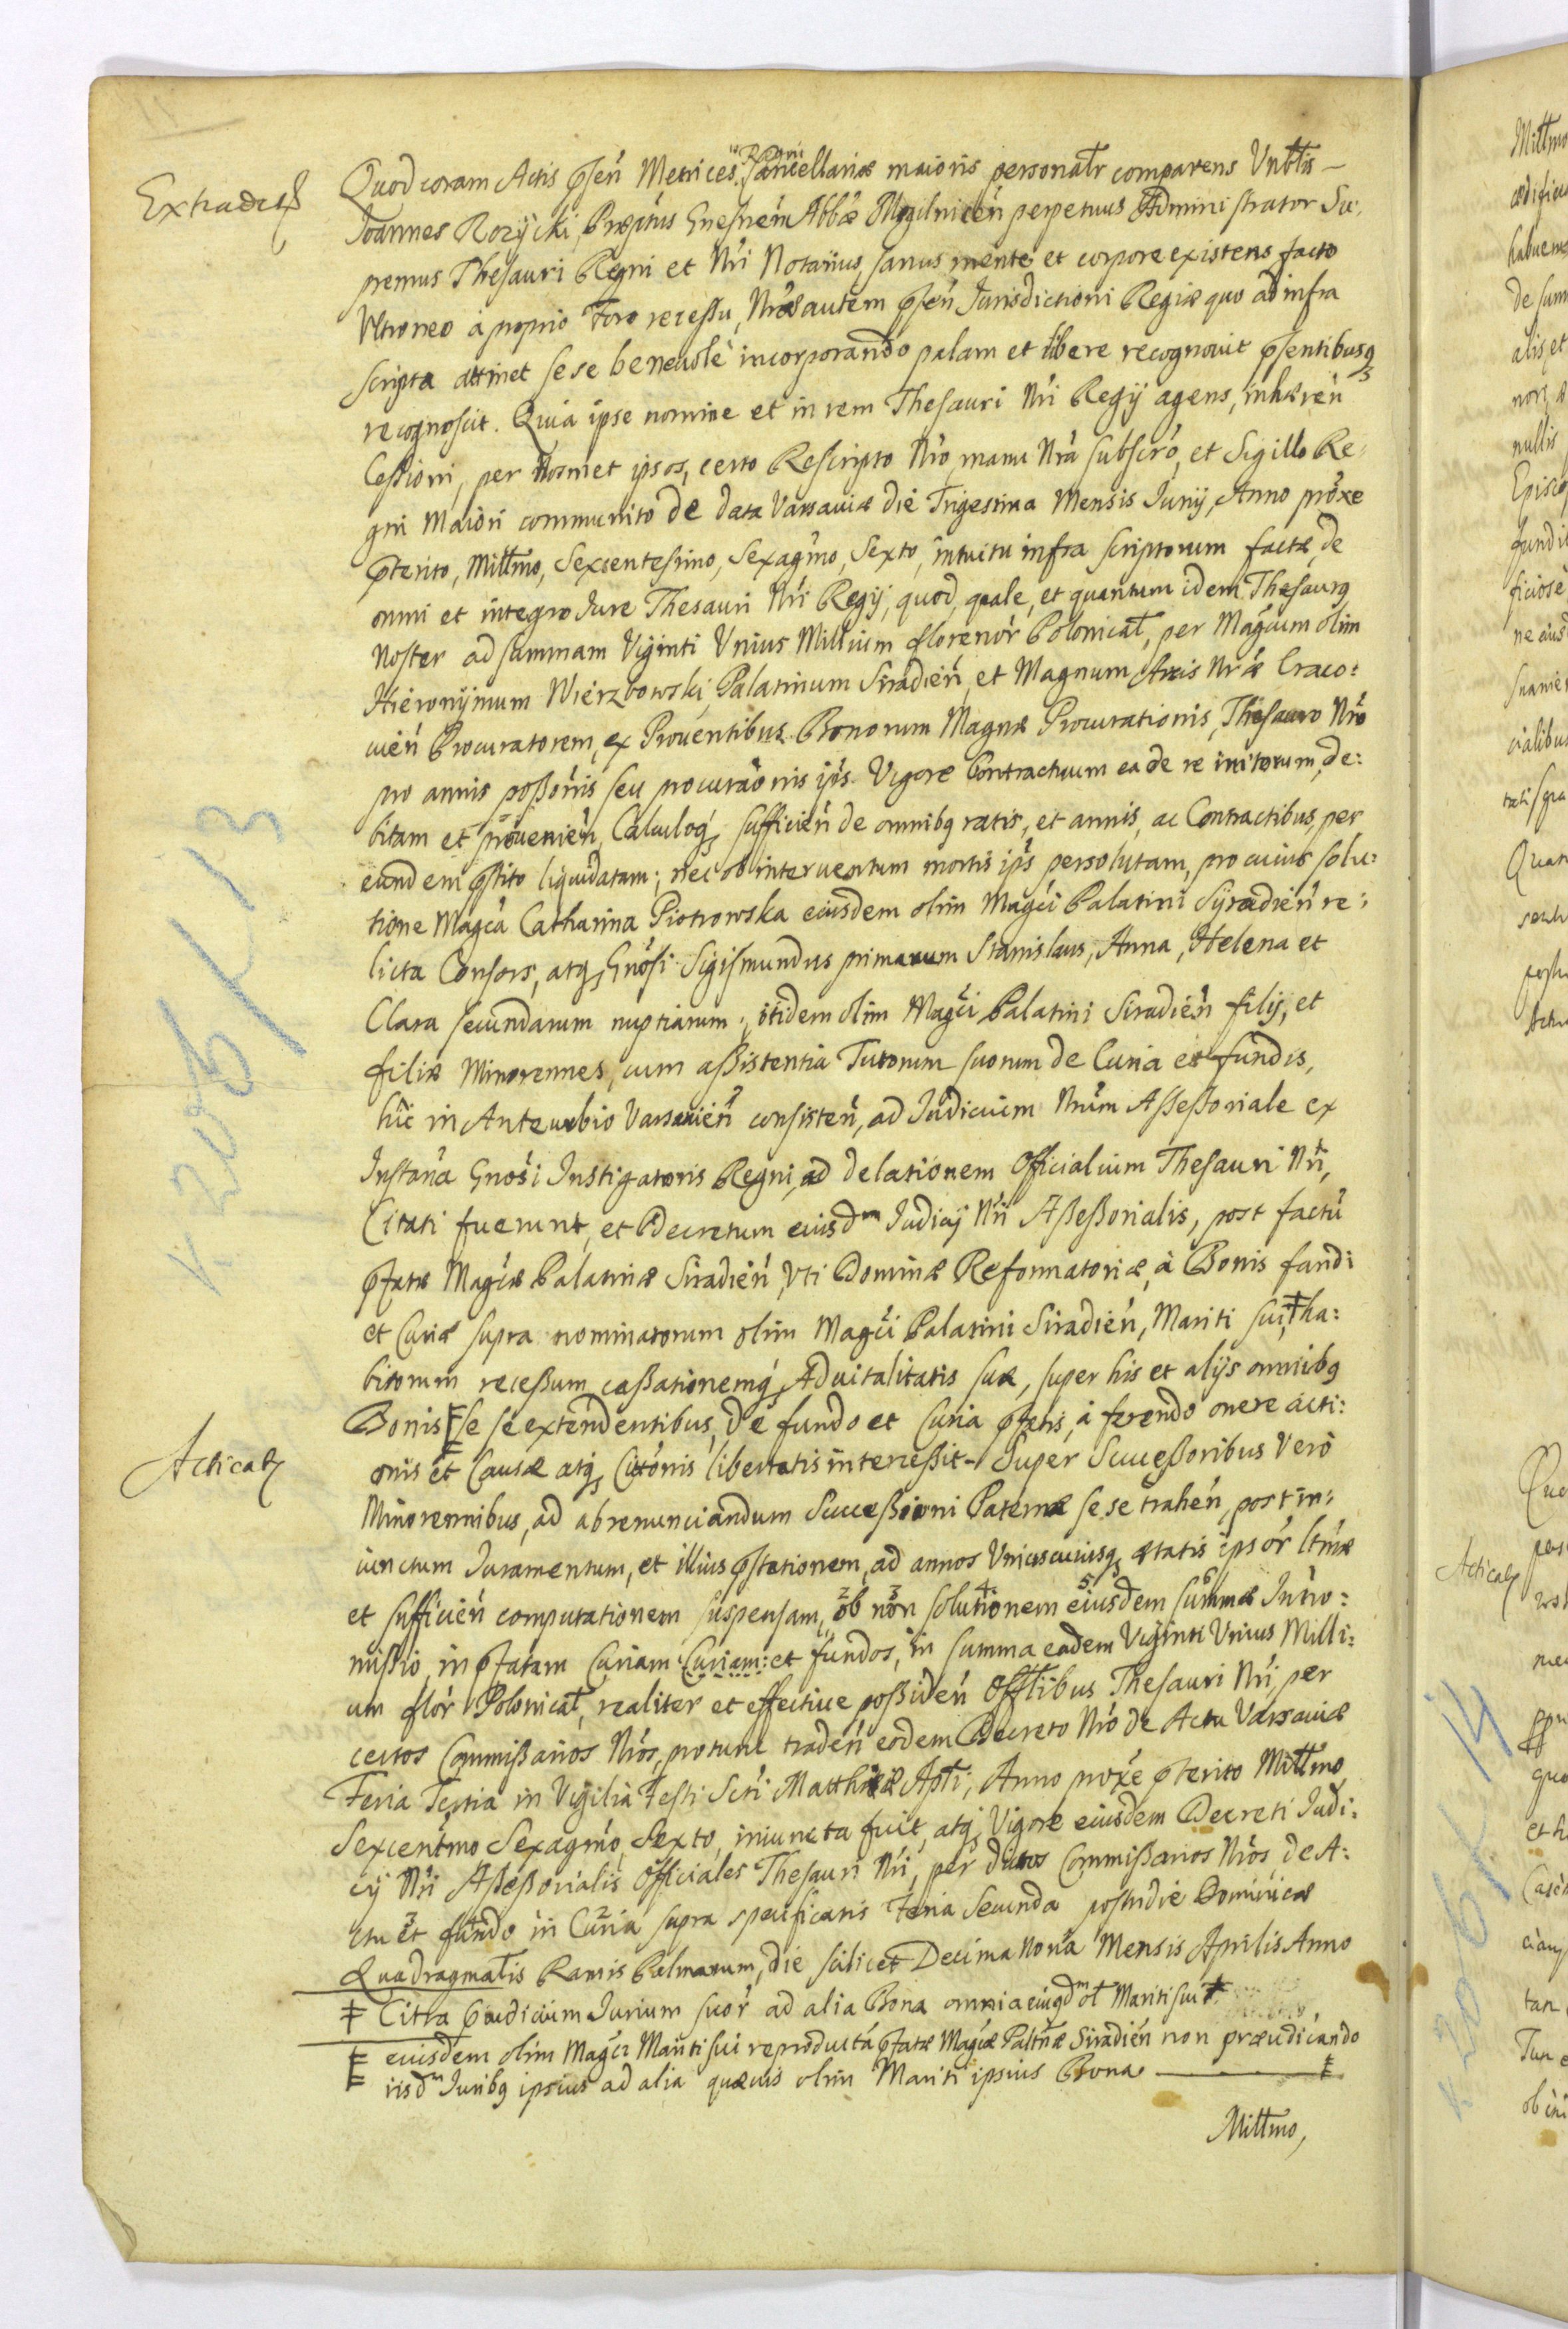 Extradend
Quod coram Actis pñsẽn Metrices Regni Cancellariæ maioris personalr comparens Vnblts
Joannes Rozÿcki, Præptus Gnesneń Abbæ Mogilniceń perpetuus Administrator Su:
premus Thesauri Regni et Nri Notarius, sanus mente et corpore existens facto
Vltroneo à proprio Foro recessu, Nræ autem pseń Jurisdictioni Regiæ quo ad infra
scripta attinet sese beneuole incorporando palam et libere recognouit psentibusq
recognoscit. Quia ipse nomine et in rem Thesauri Nri Regij agens, inhæreń
Cessioni, per Nosmet ipsos, certo Rescripto Nro, manu Nra subscro, et Sigillo Re:
gni Maiori communito de data Varsauiæ die Trigesima Mensis Junij, Anno proxe
pterito, Millmo, Sexcentesimo, Sexagmo, Sexto, intuitu infra scriptorum factæ, de
omni et integro Jure Thesauri Nri Regij, quod, quale, et quantum idem Thesaurq
Noster ad summam Viginti Vnius Millium florenor Polonical, per Magcum olim
Hieronÿmum Wierzbowski, Palatinum Siradień, et Magnum Arcis Nræ Craco:
uień Procuratorem, ex Prouentibus Bonorum Magnæ Procurationis, Thesauro Nro
pro annis possonis seu procuraonis ipis Vigore Contractuum ea de re initorum, de:
bitam et proueniẽn, Calculoq, sufficień de omnibq ratis, et annis, ac Contractibus, per
eundem pstito liquidatam; nec ob interuentum mortis ipis persolutam, pro cuius solu:
tione Magca Catharina Piotrowska eiusdem olim Magci Palatini Sÿradień re:
licta Consors, atq, Gnosi Sigismundus primarum Stanislaus, Anna, Helena et
Clara secundarum nuptiarum; itidem olim Magci Palatini Siradień filij, et
filiæ Minorennes, cum assistentia Tutorum suorum de Curia et fundis,
hic in Anteurbio Varsauień consisteń, ad Judicium Nrum Assessoriale ex
Instana Gnosi Instigatoris Regni, ad delationem Officialium Thesauri Nri,
Citati fuerunt, et Decretum eiusdm Judicij Nri Assessorialis, post factu
pfatæ Magcæ Palatinæ Siradień, Vti Dominæ Reformatoriæ, à Bonis fundi
et Curiæ supra nominatorum olim Magci Palatini Siradień, Mariti sui, ‡ ha:
bitorum recessum, cassationemq, Aduitalitatis suæ, super his et alijs omnibq
Bonis se se extendentibus, de fundo et Curia pfatis, à ferendo onere acti:
Acticad
onis et Causæ atq, Cittonis libertatis intercessit. Super Successoribus Verò
Minorennibus, ad abrenunciandum Successioni Paternæ se se traheń, post in:
iunctum Juramentum, et illius pstationem, ad annos Vniuscuiusq, ætatis ipsor ltmæ
et sufficień computationem suspensam, ob non solutionem eiusdem summæ Intro:
missio, in pfatam Curiam Curiam: et fundos, in summa eadem Viginti Vnius Milli:
um flor Polonical, realiter et effectiue possideń Offtlibus Thesauri Nri, per
certos Commissarios Nros, protunc tradeń eodem Decreto Nro de Actu Varsauiæ
Feria Tertia in Vigilia Festi Scti Matthæi Apli, Anno proxe pterito Millmo
Sexcentmo Sexagmo, Sexto, iniuncta fuit, atq, Vigore eiusdem Decreti Judi:
cij Nri Assessorialis Officiales Thesauri Nri, per dictos Commissarios Nros, de A:
ctu et fundo in Curia supra specificatis Feria Secunda postridie Dominicæ
Quadragmalis Ramis Palmarum, die scilicet Decima Nona Mensis Aprilis Anno
‡ Citra Præiudicium Jurium suor ad alia Bona omnia eiusdm ol Mariti sui ‡
eiusdem olim Magci Mariti sui reproducta pfatæ Magcæ Paltnæ Siradień non præiudicando
iisdm Juribq ipsius ad alia quæuis olim Mariti ipsius Bona
Millmo,